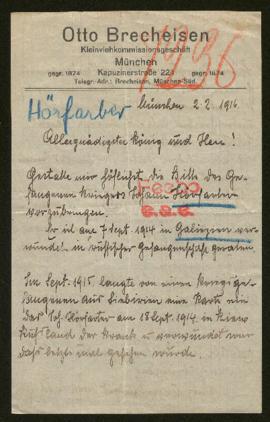 Otto Brecheisen
Kleinviehkommissionsgeschäft
München
gegr. 1874 Kapuzinerstraße 22 I gegr. 1874
Telegr.-Adr.: Brecheisen, München-Süd.
1236
Hörfarber
München 2.2.1916.
Allergnädigster König und Herr!
Gestatte mir höflichst, die Bitte des Ge-
fangenen Kriegers Johann
vorzubringen.
Er ist am 7 Sept. 1914 in Galizien ver-
wundet in russischer Gefangenschaft geraten.
Im Sept. 1915 langte von einem Kriegsge-
fangenen aus Sibirien eine Karte ein
das Joh. am 18 Sept. 1914 in Kiew
Russland der krank u verwundet war
das letzte mal gesehen wurde.